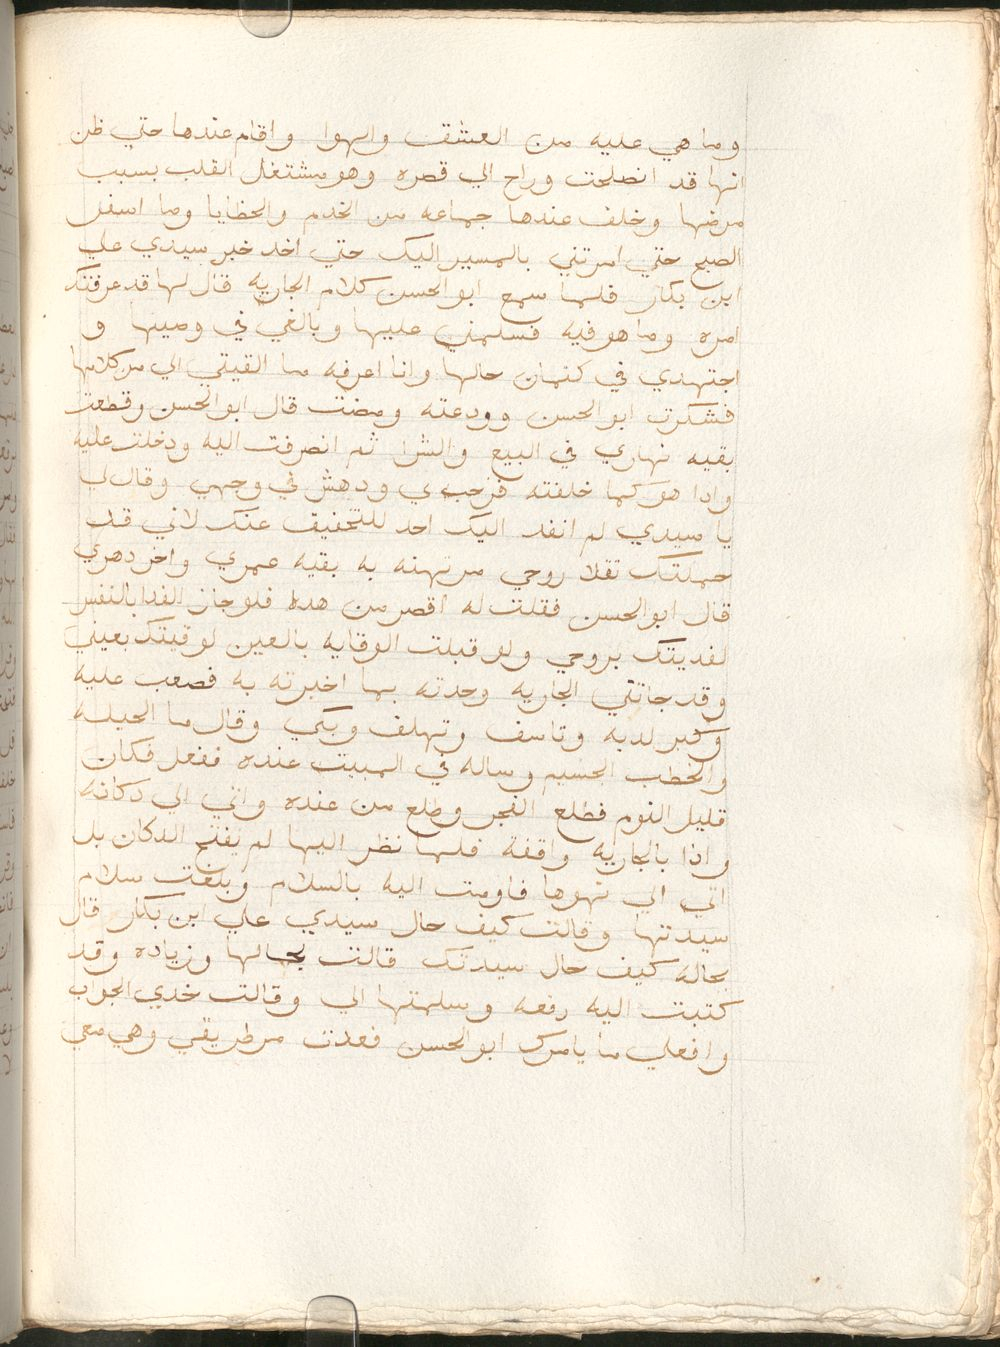 وما هي عليه من العشق والهوا واقام عندها حتي ظن
انها قد انصلحت وراح الي قصره وهو مشتغل القلب بسبب
مرضها وخلف عندها جماعه من الخدم والحظايا وما اسفر
الصبح حتي امرتني بالمسير اليك حتي اخد خبر سيدي علي
ابن بكار فلما سمع ابو الحسن كلام الجاريه قال لها قد عرفتك
امره وما هو فيه فسلمي عليها وبالغي في وصيتها و
اجتهدي في كتمان حالها وانا اعرفه ما القيتي الي من كلامها
فشكرت ابو الحسن وودعته ومضت قال ابو الحسن وقطعت
بقيه نهاري في البيع والشرا ثم انصرفت اليه ودخلت عليه
واذا هو كما خلفته فرحب بي ودهش في وجهي وقال لي
يا سيدي لم انفد اليك احد للتخفيف عنك لاني قد
حملتك تقلا روحي مرتهنه به بقيه عمري واخر دهري
قال ابو الحسن فقلت له اقصر من هده فلو جاز الفدا بالنفس
لفديتك بروحي ولو قبلت الوقايه بالعين لوقيتك بعيني
وقد جاتني الجاريه وحدته بما اخبرته به فصعب عليه
وكبر لديه وتاسف وتهلف وبكي وقال ما الحيله
والخطب الجسيم وساله في المبيت عنده ففعل فكان
قليل النوم فطلع الفجر وطلع من عنده واتي الي دكانه
واذا بالجاريه واقفة فلما نظر اليها لم يفتح الدكان بل
اتي الي نحوها فاومت اليه بالسلام وبلغت سلام
سيدتها وقالت كيف حال سيدي علي ابن بكار قال
بحاله كيف حال سيدتك قالت بحالها وزياده وقد
كتبت اليه رقعه وسلمتها الي وقالت خدي الجواب
وافعلي ما يامرك ابو الحسن فعدت من طريقي وهي معي